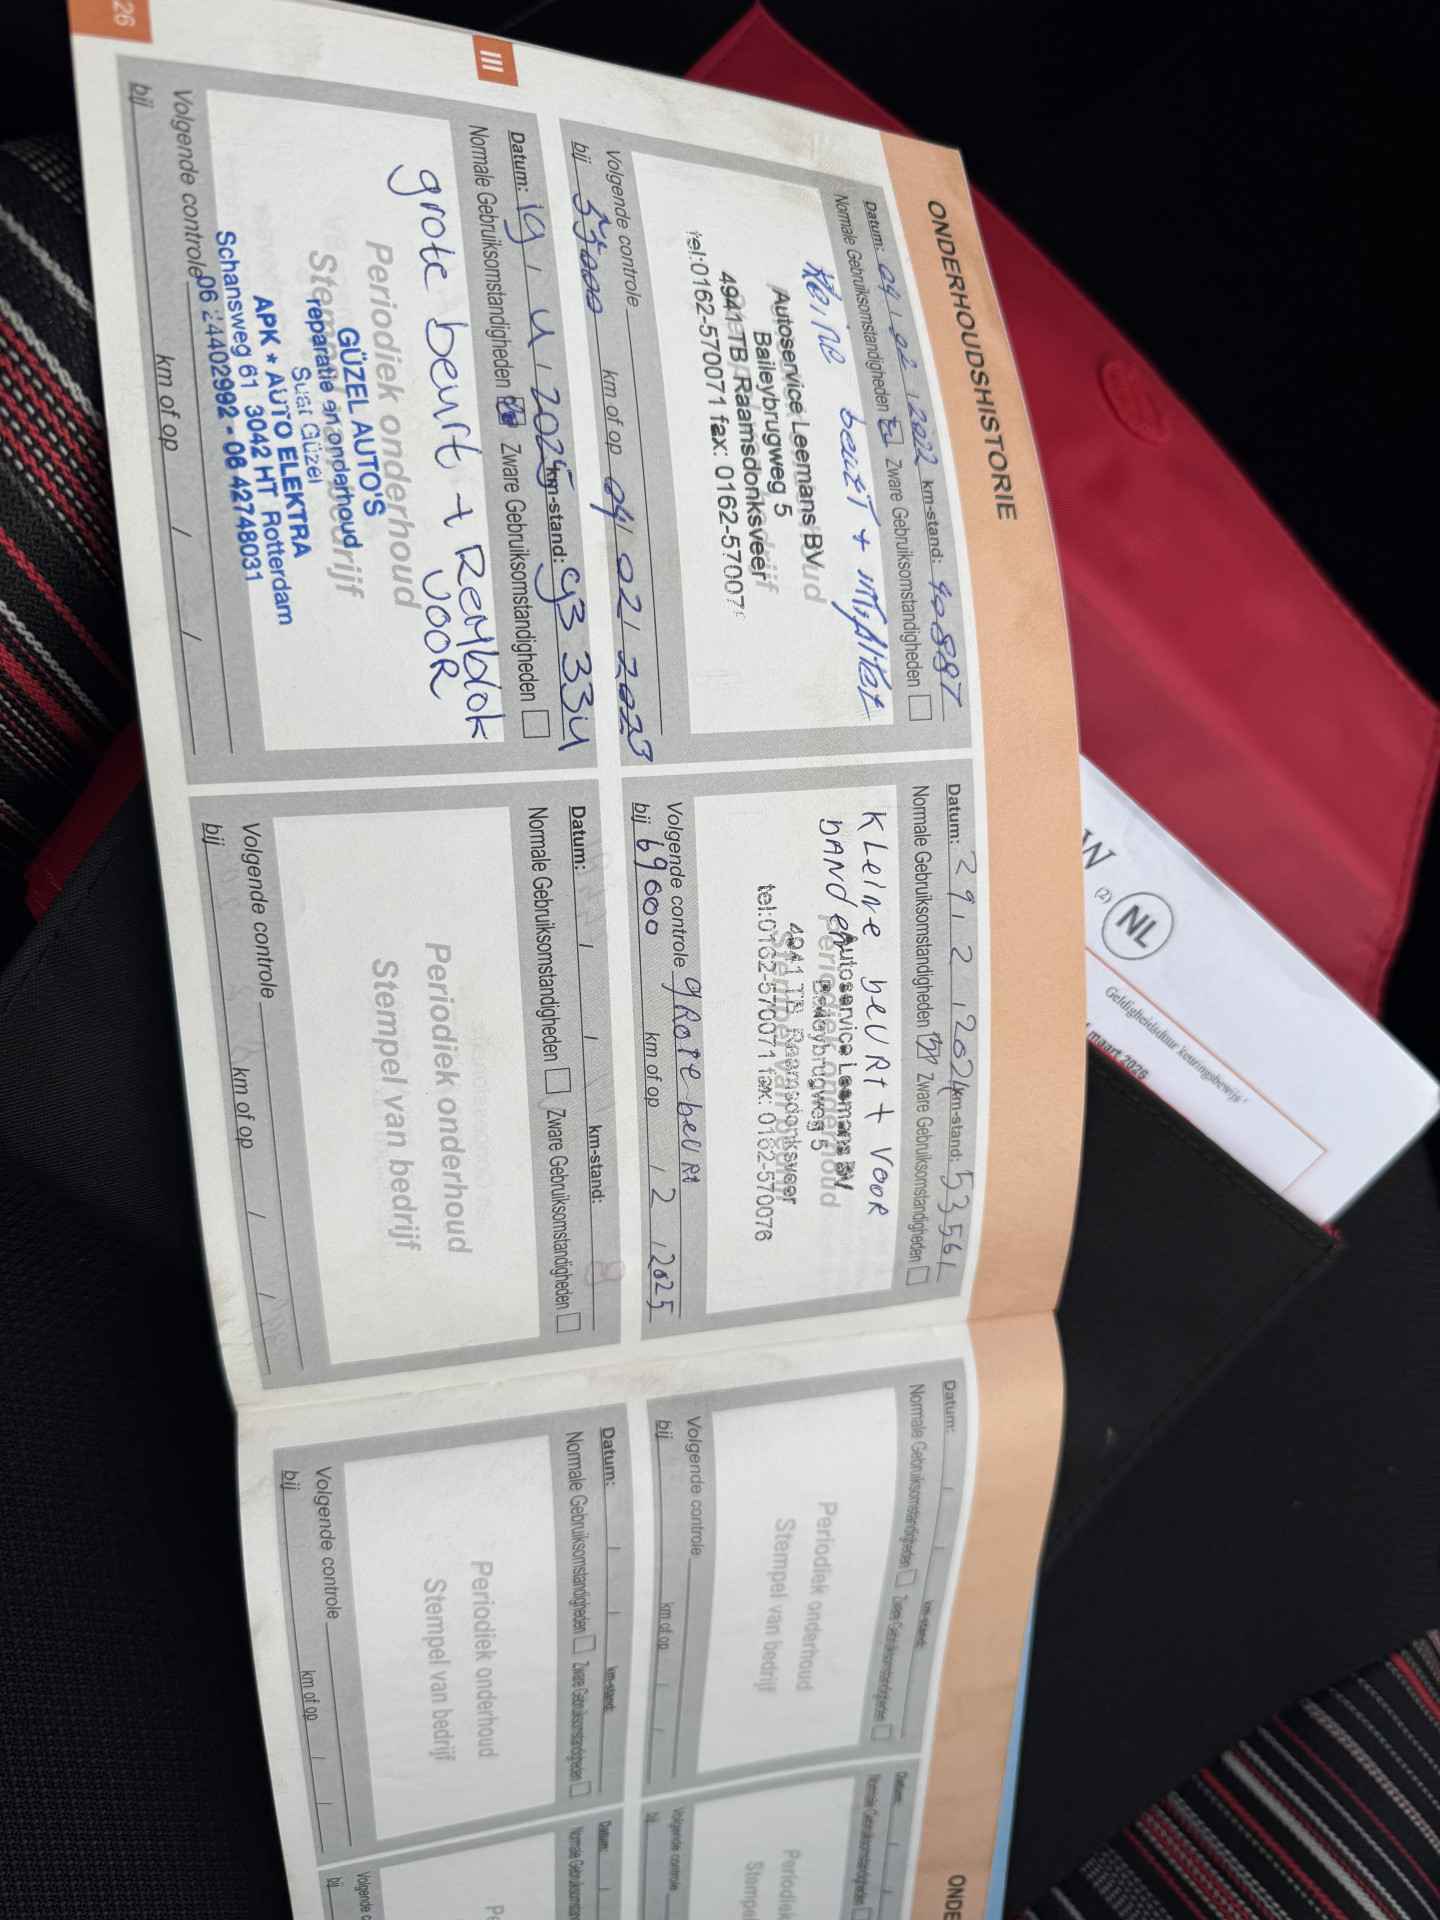 ONDERHOUDSHISTORIE
Datum: 04 / 02 / 2022 km-stand: 40887
Normale Gebruiksomstandigheden Zware Gebruiksomstandigheden
kleine beurt +
Autoservice Leemans BV
Baileybrugweg 5
4941 TB Raamsdonksveer
tel:0162-570071 fax: 0162-57007
Volgende controle
bij 55000 km of op 04 / 02 / 2023
Datum: 29 / 2 / 2024 km-stand: 53561
Normale Gebruiksomstandigheden Zware Gebruiksomstandigheden
Kleine beurt + voor
banden
Periodiek onderhoud
Stempel van bedrijf
Autoservice Leemans BV
Baileybrugweg 5
4941 TB Raamsdonksveer
tel:0162-570071 fax: 0162-570076
Volgende controle grote beurt
bij 69000 km of op / 2 / 2025
III
Datum: 19 / 4 / 2025 km-stand: 93 334
Normale Gebruiksomstandigheden Zware Gebruiksomstandigheden
grote beurt + Remblok
VOOR
Periodiek onderhoud
Stempel van bedrijf
GÜZEL AUTO'S
reparatie en onderhoud
Suat Güzel
APK * AUTO ELEKTRA
Schansweg 61 3042 HT Rotterdam
06 24402992 - 06 42748031
Volgende controle
bij km of op / /
Datum: / / km-stand:
Normale Gebruiksomstandigheden Zware Gebruiksomstandigheden
Periodiek onderhoud
Stempel van bedrijf
Volgende controle
bij km of op / /
26
ONDE
Datum: / / km-stand:
Normale Gebruiksomstandigheden Zware Gebruiksomstandigheden
Periodiek onderhoud
Stempel van bedrijf
Volgende controle
bij km of op / /
Datum:
Normale Gebruiksomstandigheden
Periodiek
Stempel
Volgende controle
bij
Datum: / / km-stand:
Normale Gebruiksomstandigheden Zware Gebruiksomstandigheden
Periodiek onderhoud
Stempel van bedrijf
Volgende controle
bij km of op / /
Datum:
Normale
Pe
Volgende c
bij
W
(2)
NL
Geldigheidsduur keuringsbewijs
maart 2026